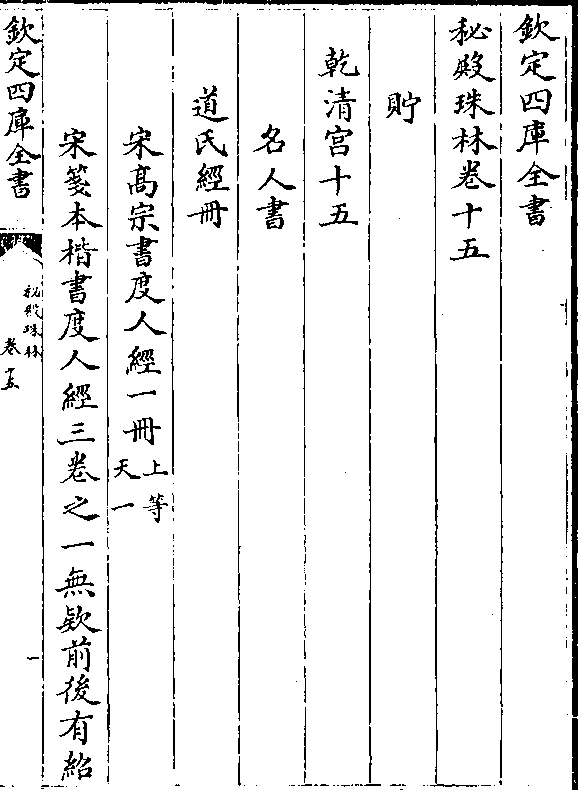 欽定四庫全書
秘殿珠林卷十五
貯
乾清宮十五
名人書
道氏經冊
宋髙宗書度人經一冊上等天一
宋箋本楷書度人經三卷之一無欵前後有紹
欽定四庫全書
秘殿珠林
卷十五
一